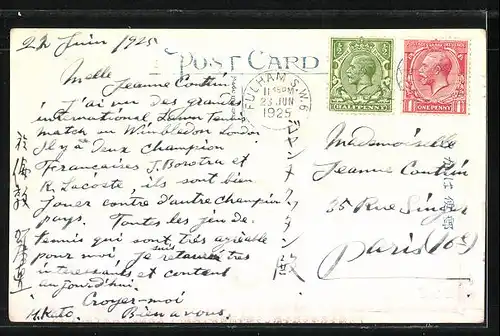 22 Juin 1925
POST CARD
Melle
Jeanne Couhin
J'ai vu des grandes
international Lawn Tennis
match in Wimbledon London
Il y a Deux Champion
Francaises J. Borotra et
R. Lacoste, ils sont bien
jouer contre d'autre Champion
pays. Toutes les jeu de
tennis qui sont très agréable
pour moi, Je suis retourne très
interessants et content
aujourd'hui.
Croyez-moi
H. Kato. Bien a vous.
FULHAM S.W.6
11.45PM
23 JUN
1925
HALFPENNY
ONE PENNY
Mademoiselle
Jeanne Couhin
35 Rue Singer
Paris (16e)